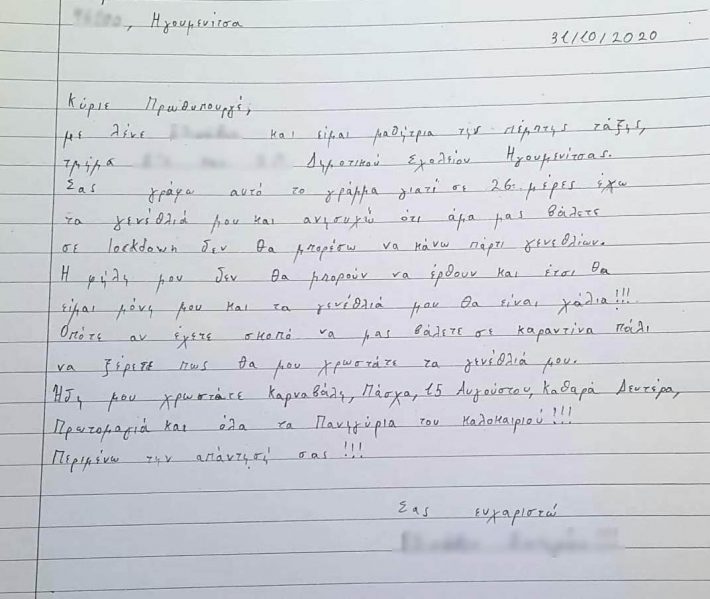 , Ηγουμενίτσα
31/10/2020
Κύριε Πρωθυπουργέ,
με λένε και είμαι μαθήτρια της πέμπτης τάξης,
τμήμα Δημοτικού Σχολείου Ηγουμενίτσας.
Σας γράφω αυτό το γράμμα γιατί σε 26 μέρες έχω
τα γενέθλιά μου και ανησυχώ ότι άμα μας βάλετε
σε lockdown δεν θα μπορέσω να κάνω πάρτι γενεθλίων.
Η φίλη μου δεν θα μπορούν να έρθουν και έτσι θα
είμαι μόνη μου και τα γενέθλιά μου θα είναι χάλια!!!
Οπότε αν έχετε σκοπό να μας βάλετε σε καραντίνα πάλι
να ξέρετε πως θα μου χρωστάτε τα γενέθλιά μου.
Ήδη μου χρωστάτε Καρναβάλη, Πάσχα, 15 Αυγούστου, Καθαρά Δευτέρα,
Πρωτομαγιά και όλα τα Πανηγύρια του καλοκαιριού!!!
Περιμένω την απάντησή σας!!!
Σας ευχαριστώ